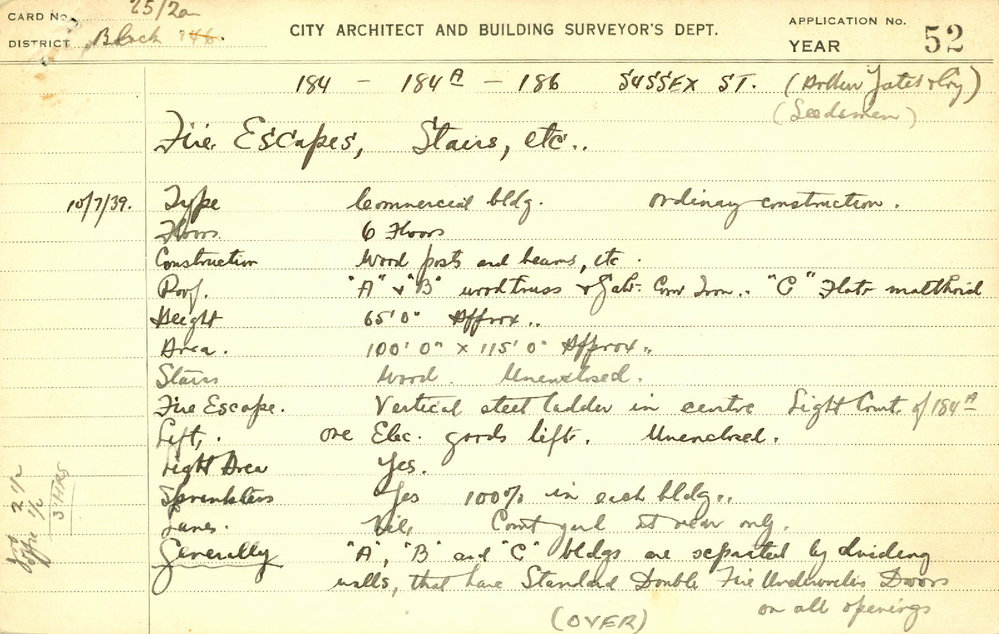 CARD No. 25/2a
CITY ARCHITECT AND BUILDING SURVEYOR'S DEPT.
APPLICATION No.
DISTRICT Block 146.
YEAR 52
184 - 184A - 186 SUSSEX ST. (Arthur Yates & Coy)
(Seedsmen)
Fire Escapes, Stairs, etc..
10/7/39. Type Commercial bldg. Ordinary construction.
Floors 6 Floors
Construction Wood posts and beams, etc.
Roof. "A" & "B" wood truss & Galv. Corr Iron.. "C" Flat malthoid
Height 65'0" Approx..
Area. 100'0" x 115'0" Approx..
Stairs Wood. Unenclosed.
Fire Escape. Vertical steel ladder in centre Light Court of 184A
Lift,. one Elec. goods lift. Unenclosed.
Light Area Yes.
Sprinklers Yes 100% in each bldg..
Lanes. Nil, Court yard at rear only.
Generally "A", "B" and "C" bldgs are separated by dividing
walls, that have Standard Double Fire Underwriters Doors
on all openings
(OVER)
2 1/2
1/2
3 HRS